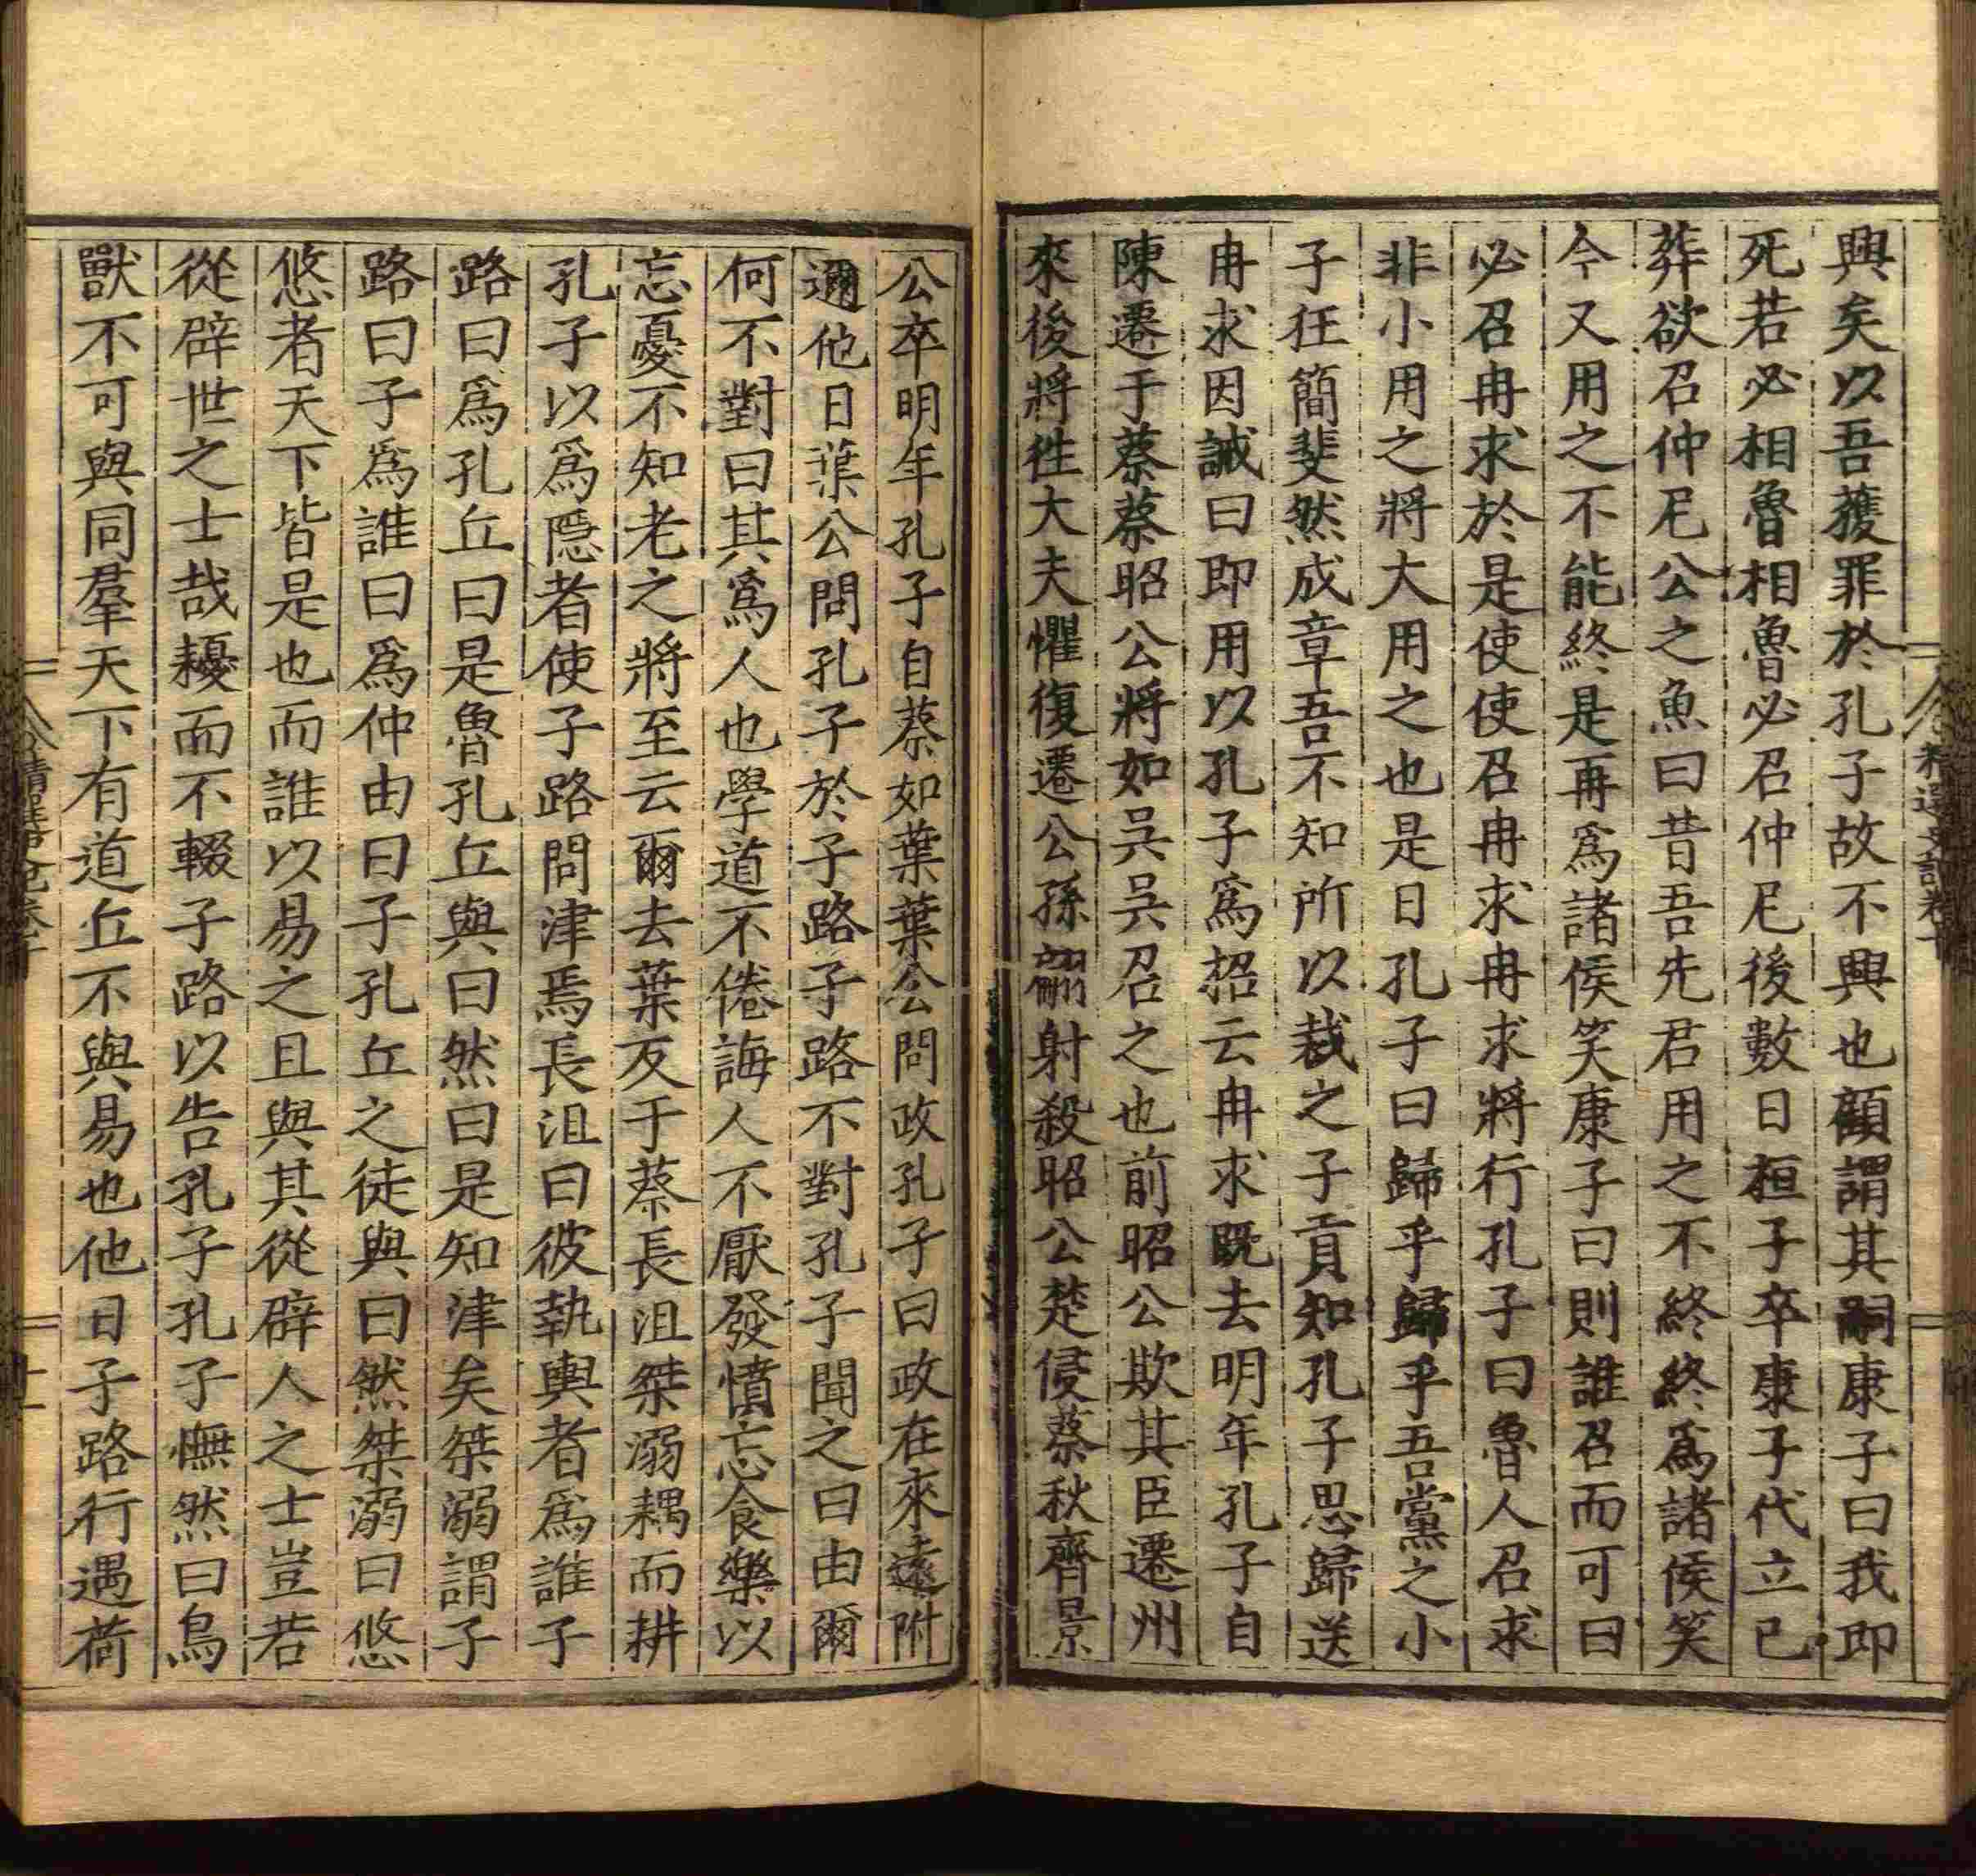 興矣以吾獲罪於孔子故不興也顧謂其嗣康子曰我即
死若必相魯相魯必召仲尼後數日桓子卒康子代立已
葬欲召仲尼公之魚曰昔吾先君用之不終終爲諸侯笑
今又用之不能終是再爲諸侯笑康子曰則誰召而可曰
必召冉求於是使使召冉求冉求將行孔子曰魯人召求
非小用之將大用之也是日孔子曰歸乎歸乎吾黨之小
子狂簡斐然成章吾不知所以裁之子貢知孔子思歸送
冉求因誡曰即用以孔子爲招云冉求既去明年孔子自
陳遷于蔡蔡昭公將如吳吳召之也前昭公欺其臣遷州
來後將徃大夫懼復遷公孫翩射殺昭公楚侵蔡秋齊景
公卒明年孔子自蔡如葉葉公問政孔子曰政在來遠附
邇他日葉公問孔子於子路子路不對孔子聞之曰由爾
何不對曰其爲人也學道不倦誨人不厭發憤忘食樂以
忘憂不知老之將至云爾去葉反于蔡長沮桀溺耦而耕
孔子以爲隱者使子路問津焉長沮曰彼執輿者爲誰子
路曰爲孔丘曰是魯孔丘與曰然曰是知津矣桀溺謂子
路曰子爲誰曰爲仲由曰子孔丘之徒與曰然桀溺曰悠
悠者天下皆是也而誰以易之且與其從辟人之士豈若
從辟世之士哉耰而不輟子路以告孔子孔子憮然曰鳥
獸不可與同羣天下有道丘不與易也他日子路行遇荷